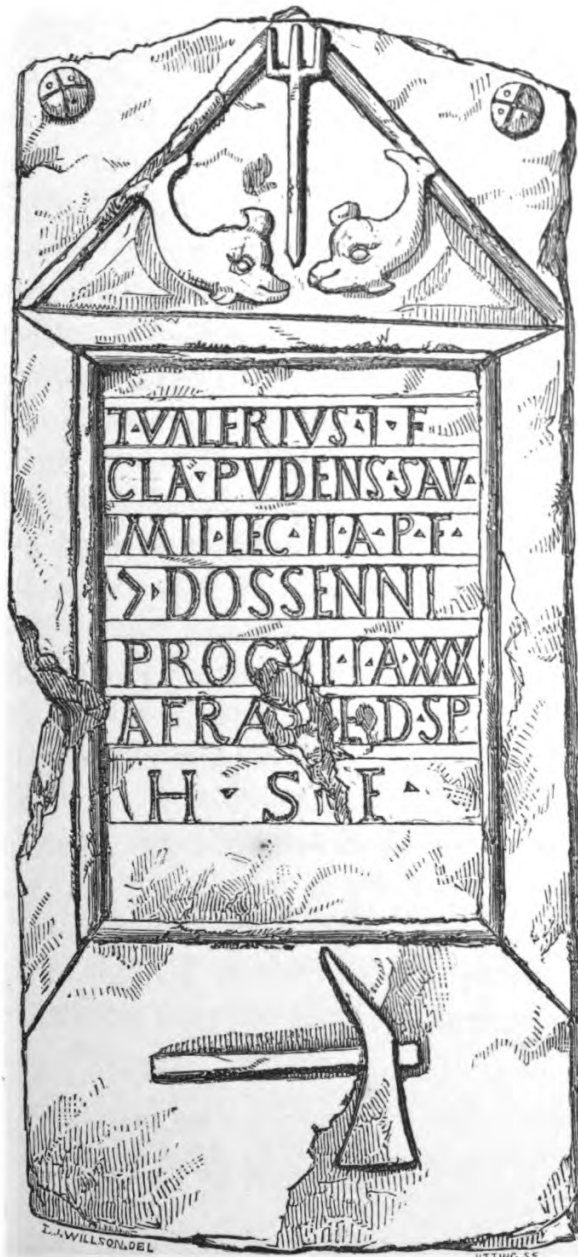 T·VALERIVS·T·F
CLA·PVDENS·SAV·
MIL·LEG·II·A·P·F·
> DOSSENNI
A·XXX
AERA D·SP
H·S·E·
WILLSON. DEL
UTTING. SC.